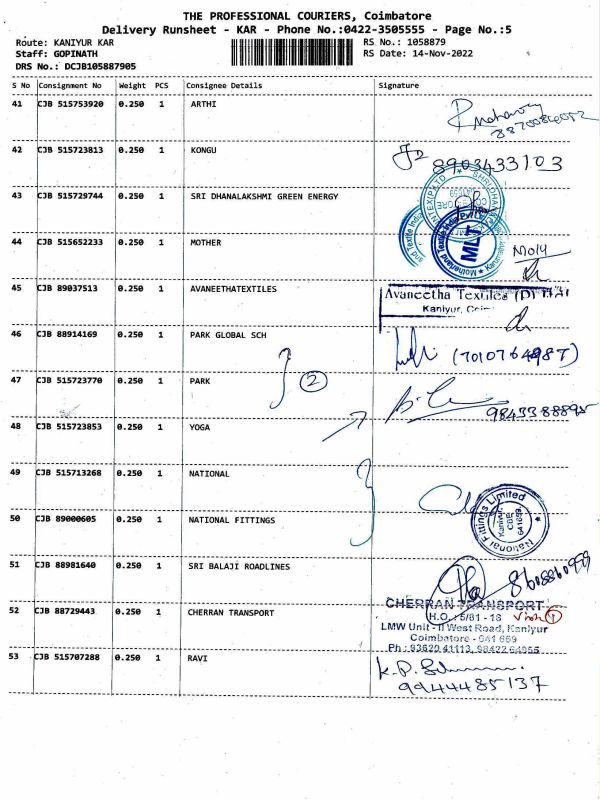 THE PROFESSIONAL COURIERS, Coimbatore
Delivery Runsheet - KAR - Phone No.:0422-3505555 - Page No.:5
Route: KANIYUR KAR RS No.: 1058879
Staff: GOPINATH RS Date: 14-Nov-2022
DRS No.: DCJB105887905
S No Consignment No Weight PCS Consignee Details Signature
41 CJB 515753920 0.250 1 ARTHI
42 CJB 515723813 0.250 1 KONGU 8903433103
43 CJB 515729744 0.250 1 SRI DHANALAKSHMI GREEN ENERGY
44 CJB 515652233 0.250 1 MOTHER MLT
45 CJB 89037513 0.250 1 AVANEETHATEXTILES Avaneetha Textiles (P)
Kaniyur,
46 CJB 88914169 0.250 1 PARK GLOBAL SCH (7010764987)
2
47 CJB 515723770 0.250 1 PARK
48 CJB 515723853 0.250 1 YOGA
49 CJB 515713268 0.250 1 NATIONAL
50 CJB 89000605 0.250 1 NATIONAL FITTINGS National Fittings Limited
Kaniyur, CBE 641659
51 CJB 88981640 0.250 1 SRI BALAJI ROADLINES
52 CJB 88729443 0.250 1 CHERRAN TRANSPORT CHERRAN TRANSPORT
H.O. : 5/81 - 18
LMW Unit - II West Road, Kaniyur
Coimbatore - 641 659
Ph : 93620 41113, 98422 64955
53 CJB 515707288 0.250 1 RAVI
9944485137